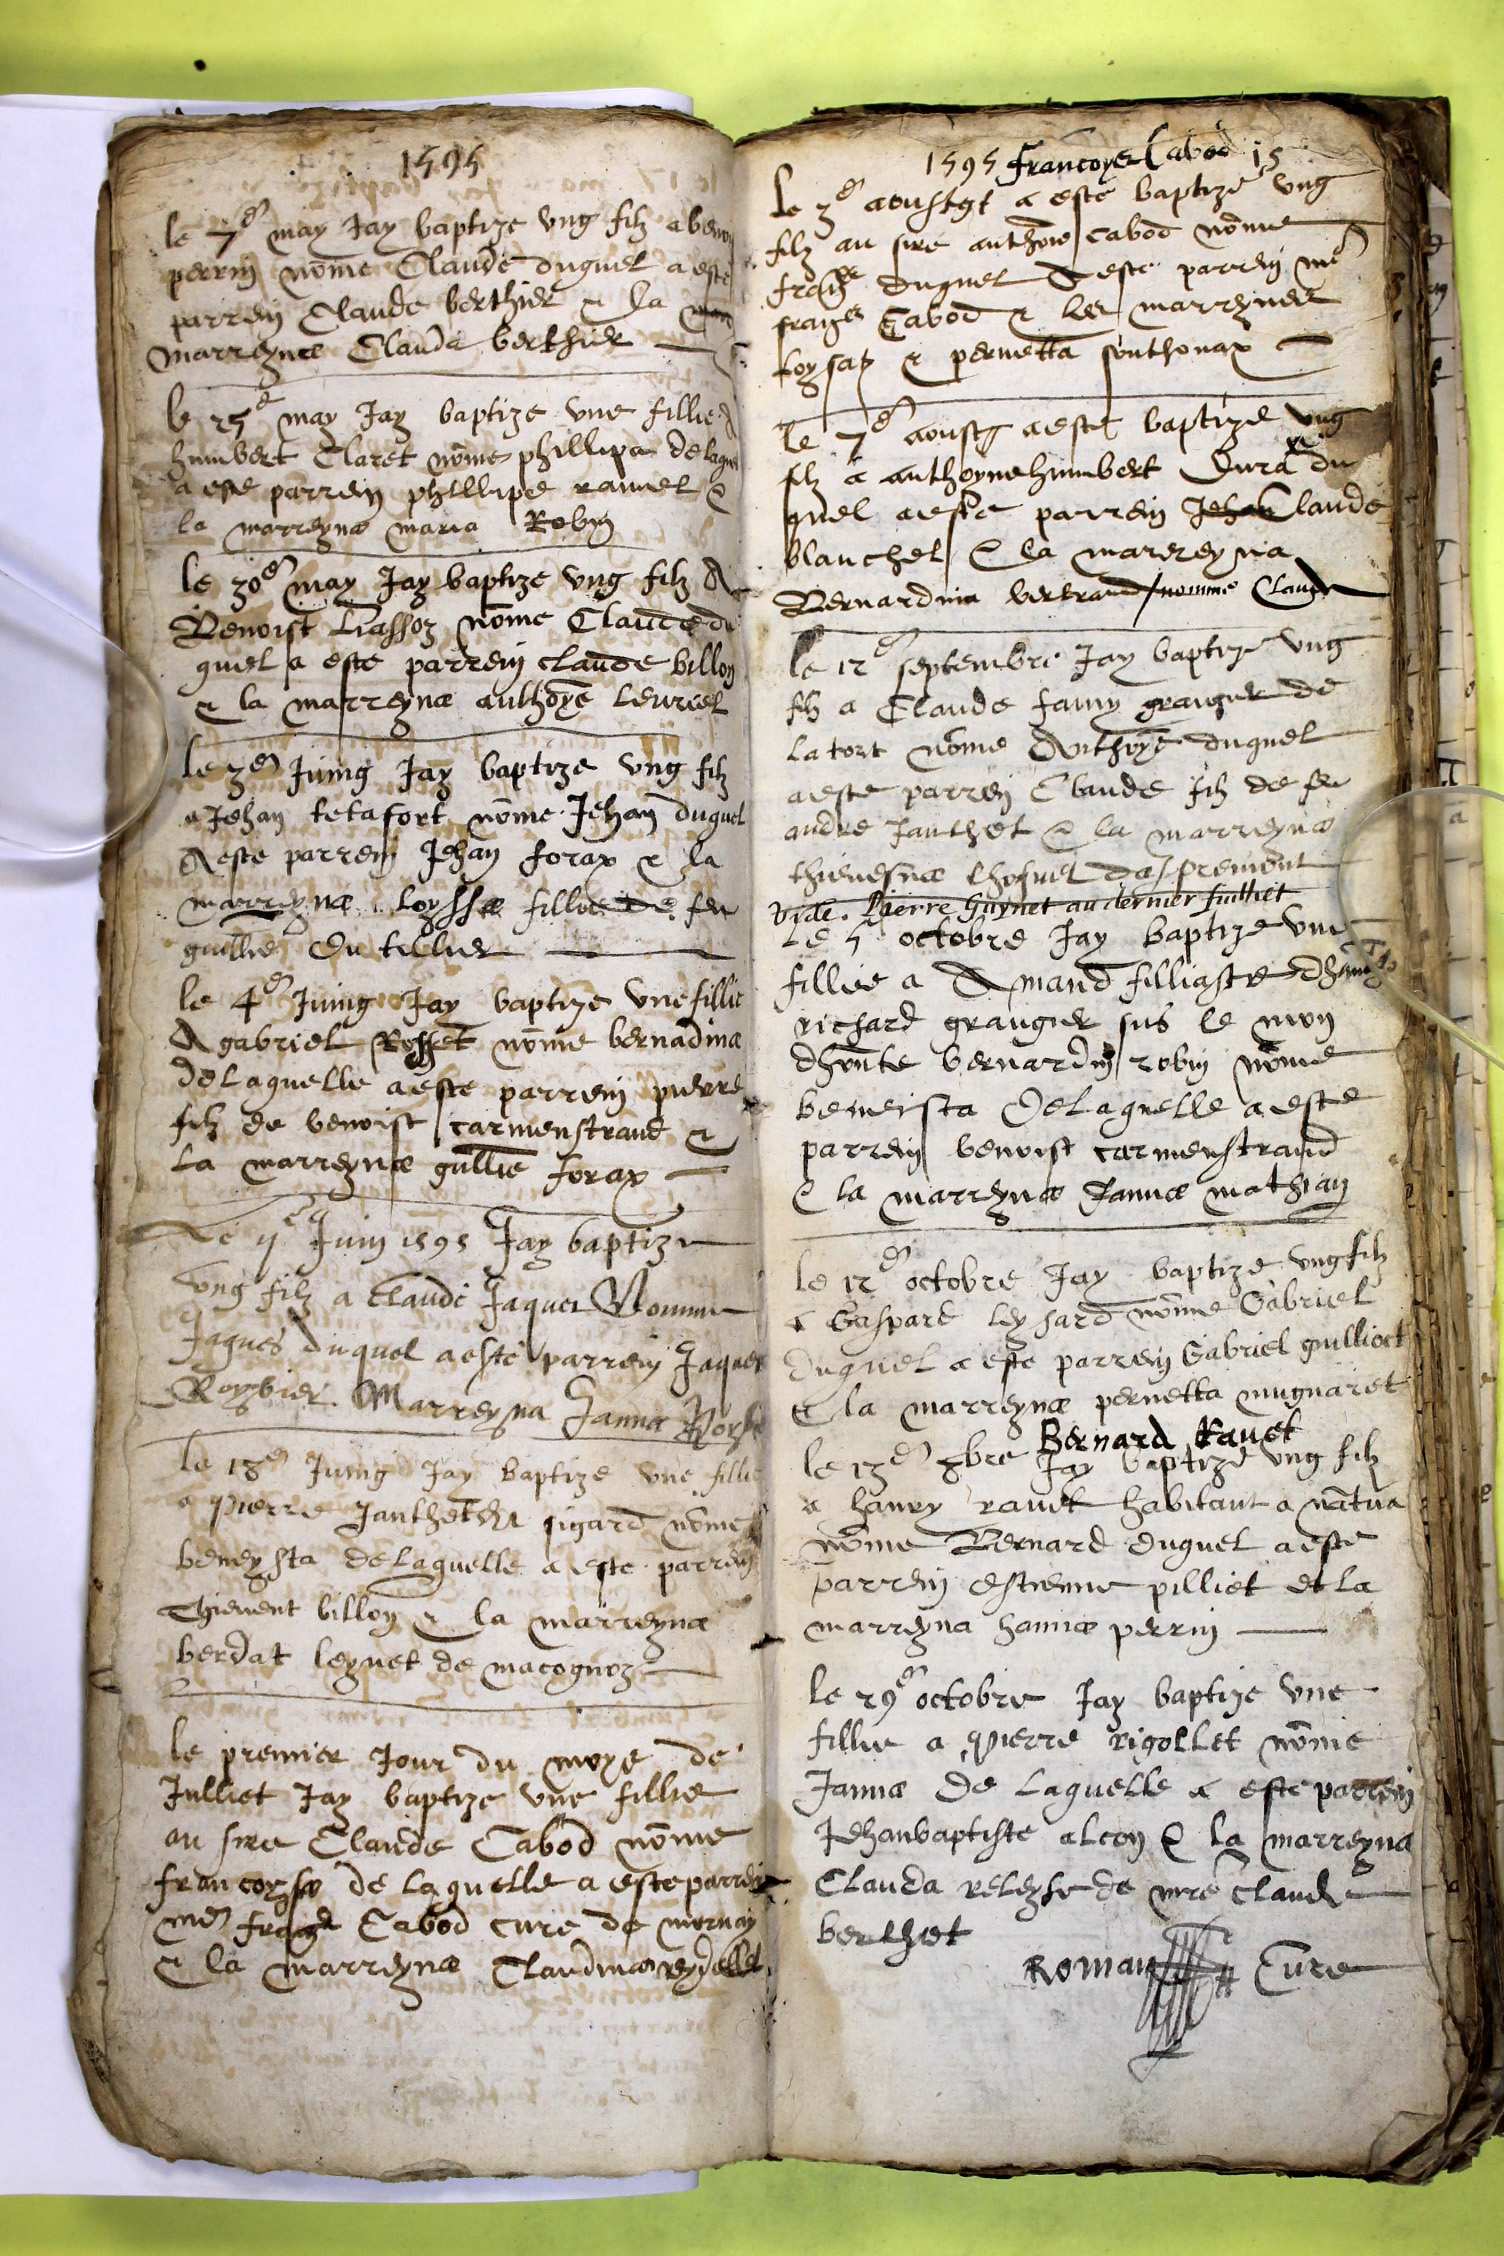 1595
le 7e may Jay baptize ung filz a benoy
perrin nōme Claude duquel a este
parrein Claude berthier & la
marreyna Clauda berthier
le 25e may Jay baptize une fillie A
humbert Claret nōme phillipa delaque
a este parrein phillipe raviel &
la marreyna maria Robin
le 30e may Jay baptize ung filz A
Benoist Liassoz nōme Claude du
quel a este parrein claude billon
& la marreyna anthoȳe
le 3e Juing Jay baptize ung filz
a Jehan tetafort nōme Jehan duquel
A este parrein Jehan forax & la
marreyna loyssa fillie de feu
guillie du tillier
le 4e Juing Jay baptize une fillie
A gabriel Rosset nōme bernadina
delaquelle a este parrein pierre
filz de benoist carmenstrand &
la marreyna gullie forax
Le Juin 1595 Jay baptize
ung filz a claude Jaquet Nomme
Jaques duquel a este parrein Jaques
Roybier Marreyna Janna
le 18e Juing Jay baptize une fillie
a pierre Janthet sigard nōme
beneysta delaquelle a este parrein
Thievent billon & la marreyna
verdat leynet de macognoz
le premier Jour du moys de
Julliet Jay baptize une fillie
au sire Claude Cabod nōme
francoysa de laquelle a este parrein
mre Cabod cure de mornay
& la marreyna Claudina reydellet
1595 francoys Cabod 15
le 3e aoustgt a este baptize ung
filz au sire anthoie cabod nōme
duquel A este parrein mre
Cabod & les marreynes
loysaz & pernetta sonthonax
le 7e aoust a este baptize ung
filz a anthoyne humbert du
quel a este parrein Jehan Claude
blanchet & la marreyna
Bernardina bertrand / nomme Claude
le 12e septembre Jay baptize ung
filz a Claude famy grangier de
la tort nōme Anthoȳe duquel
a este parrein Claude filz de feu
andre Janthet & la marreyna
thievenna de premont
vide. Pierre Guynet au dernier Juilliet
Le 5 octobre Jay baptize une
fillie a Amand filliastre
richard grangier sus le mon
dhonte bernardin robin nōme
beneista delaquelle a este
parrein benoist carmenstrand
& la marreyna Janna mathian
le 12e octobre Jay baptize ung filz
a Gaspard leysard nōme Gabriel
duquel a este parrein Gabriel guilliot
& la marreyna pernetta mugnaret
Bernard Ravet
le 13e 8bre Jay baptize ung filz
a hanry ravet habitant a nātua
nōme Bernard duquel a este
parrein estienne pilliet et la
marreyna hanna perrin
le 29e octobre Jay baptize une
fillie a pierre rigollet nōme
Janna de laquelle a este parrein
Jehanbaptiste alcon & la marreyna
Clauda releysse de mre Claude
berthet
Roman Cure